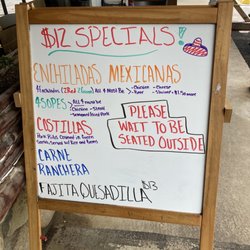 $12 SPECIALS!
ENCHILADAS MEXICANAS
4 Enchiladas (2 Red 2 Green) All 4 must Be > Chicken - Cheese
- Beef - Shrimp + $1.50 more
4 SOPES > ALL 4 must be
- Chicken - Steak
- Ground Beef/Pork
PLEASE
WAIT TO BE
SEATED OUTSIDE
COSTILLAS
Pork Ribs Covered in Green
Served w/ Rice and Beans
CARNE
RANCHERA
FAJITA QUESADILLA $13